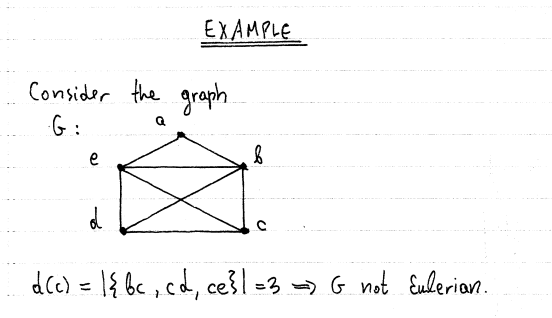 EXAMPLE
Consider the graph
G:
a
e
b
d
c
d(c) = |{bc, cd, ce}| = 3 ⇒ G not Eulerian.